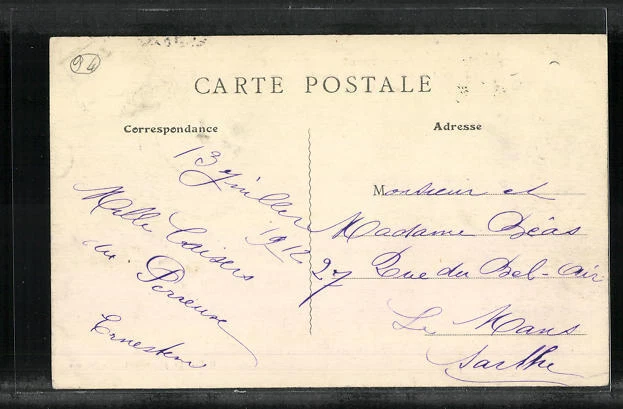 94
CARTE POSTALE
Correspondance
Adresse
13 Juillet
1912
Mille Baisers
du Perreux
Ernestine
Monsieur et
Madame Béas
27 Rue du Bel-air
Le Mans
Sarthe